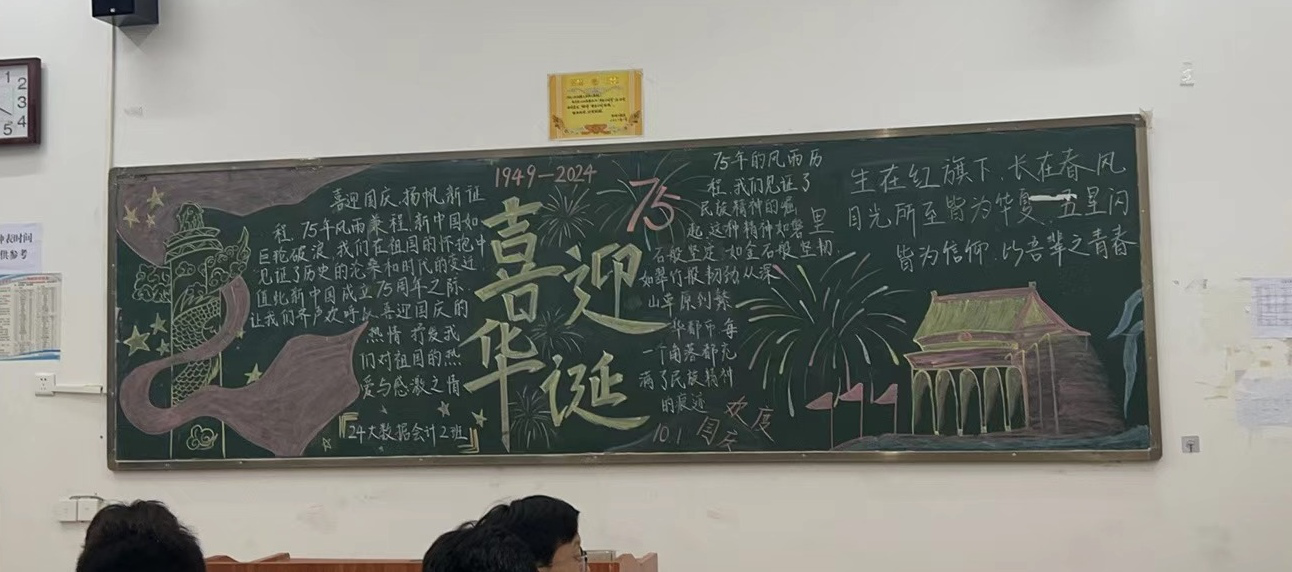 1
2
3
4
5
钟表时间
1949—2024
75
喜迎
华诞
喜迎国庆,扬帆新征
程,75年风雨兼程,新中国如
巨轮破浪,我们在祖国的怀抱中
见证了历史的沧桑和时代的变迁
值此新中国成立75周年之际、
让我们齐声欢呼以喜迎国庆的
热情 抒发我
们对祖国的热
爱与感激之情
24大数据会计2班
75年的风雨历
程,我们见证了
民族精神的崛
起,这种精神如磐
石般坚定,如金石般坚韧,
如翠竹般韧劲从深
山草原到繁
华都市,每
一个角落都充
满了民族精神
的痕迹
里
10.1
欢度
国庆
生在红旗下,长在春风
目光所至皆为华夏 五星闪
皆为信仰,以吾辈之青春